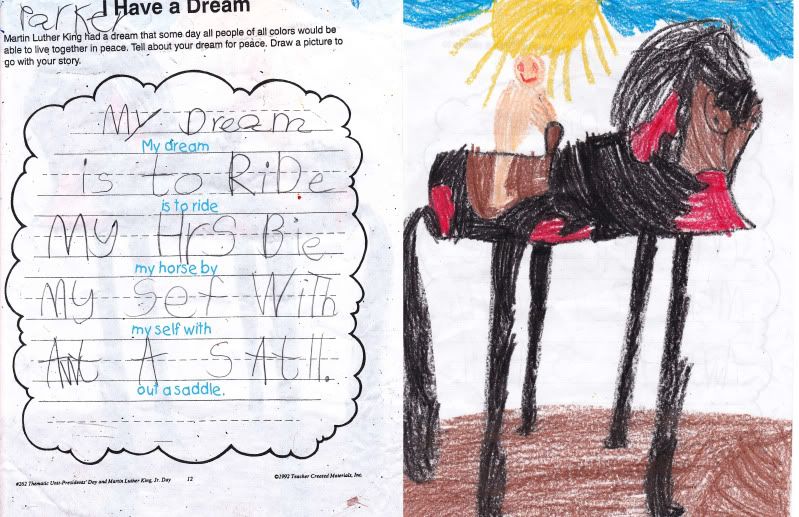 Parker
I Have a Dream
Martin Luther King had a dream that some day all people of all colors would be
able to live together in peace. Tell about your dream for peace. Draw a picture to
go with your story.
My Dream
My dream
is to RiDe
is to ride
My HrS Bie
my horse by
My Sef With
my self with
Aut A SAtll.
out a saddle.
#262 Thematic Unit-Presidents' Day and Martin Luther King, Jr. Day 12 ©1992 Teacher Created Materials, Inc.